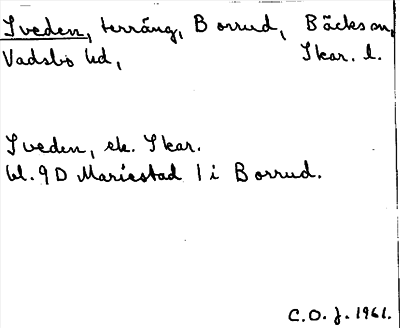 Sveden, terräng, Borrud, Bäcks sn,
Vadsbo hd, Skar. l.
Sveden, ek. Skar.
bl. 9D Mariestad 1 i Borrud.
C.O.J. 1961.